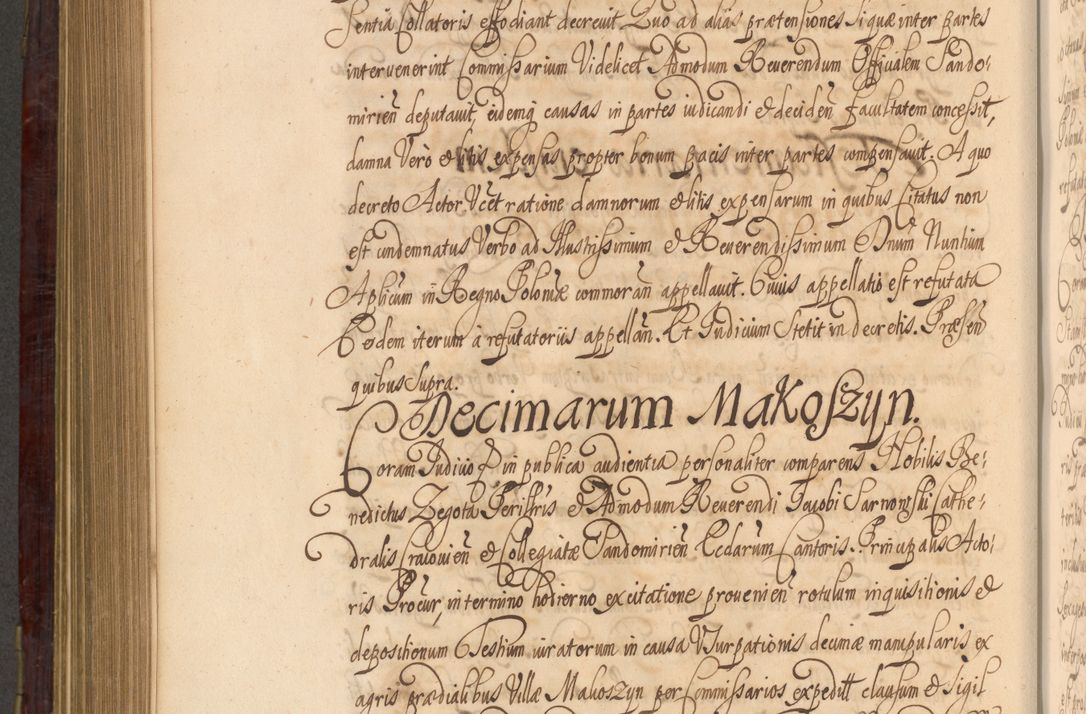 sentia Collatoris effodiant decreuit Quo ad alias prætensiones si quæ inter partes
intervenerint Commissarium Videlicet Admodum Reuerendum Offivalem Sando:
mirień deputauit, eidemq causas in partes iudicandi et deciden̄ facultatem concessit,
damna Verò et litis expensas propter bonum pacis inter partes compensauit. A quo
decreto Actor Vcet ratione damnorum et litis expensarum in quibus Citatus non
est condemnatus Verbo ad Illustrissimum et Reuerendissimum Dnum Nuntium
Aplicum in Regno Poloniæ commoran̄ appellauit. Cuius appellatio est refutata
Eodem iterum à refutatoriis appellan̄. Et Iudicium stetit in decretis. Præsen̄
quibus supra.
Decimarum Makoszyn.
Coram Iudicio et in publica audientia personaliter comparens Nobilis Be:
nedictus Zegota Perillris et Admodum Reuerendi Jacobi Sarnowski Cathe:
dralis Cracovien̄ et Collegiatæ Sandomirien̄ Ecclarum Cantoris. Principalis Acto:
ris Procur, in termino hodierno ex citatione provenien̄ rotulum inquisitionis et
depositionum Testium iuratorum in causa Vsurpationis decimæ manipularis ex
agris prædialibus Villæ Makoszyn per Commissarios expedit clausum et sigil